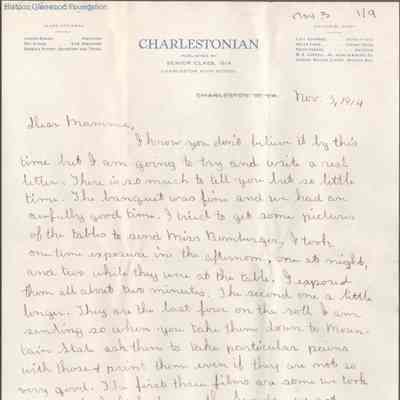 Historic Glenwood Foundation
Nov. 3 1/9
CHARLESTONIAN
PUBLISHED BY
SENIOR CLASS, 1914
CHARLESTON HIGH SCHOOL
CHARLESTON, W. VA.
Nov. 3, 1914
Dear Mamma,
I know you don't believe it by this
time but I am going to try and write a real
letter. There is so much to tell you but so little
time. The banquet was fine and we had an
awfully good time. I tried to get some pictures
of the tables to send Miss Bamberger, I took
one time exposure in the afternoon, one at night,
and two while they were at the table. I exposed
them all about two minutes. The second one a little
longer. They are the last four on the roll I am
sending so when you take them down to Moun-
tain State ask them to take particular pains
with those & print them even if they are not so
very good. The first three films are some we took